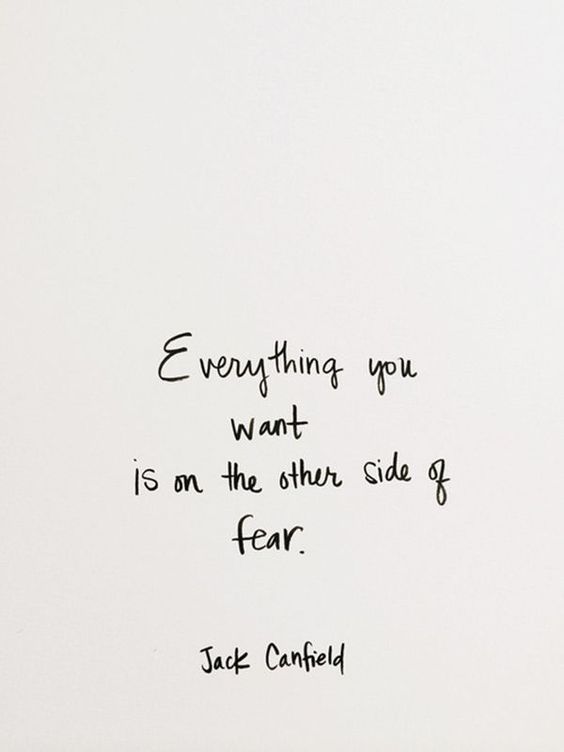 Everything you
want
is on the other side of
fear.
Jack Canfield